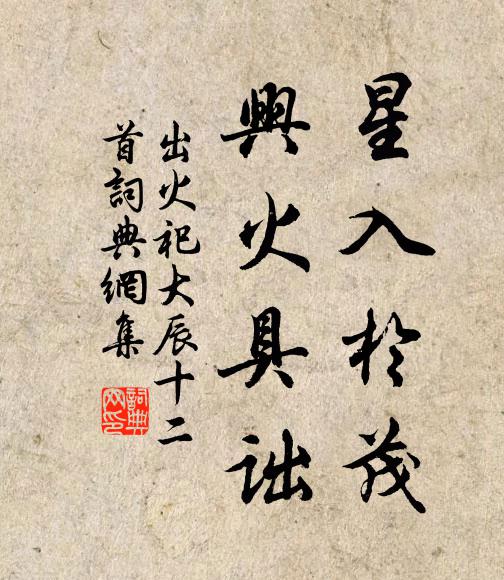 星入於茂
興火具詘
出火祀大辰十二
首詞典網集
詞典
网印